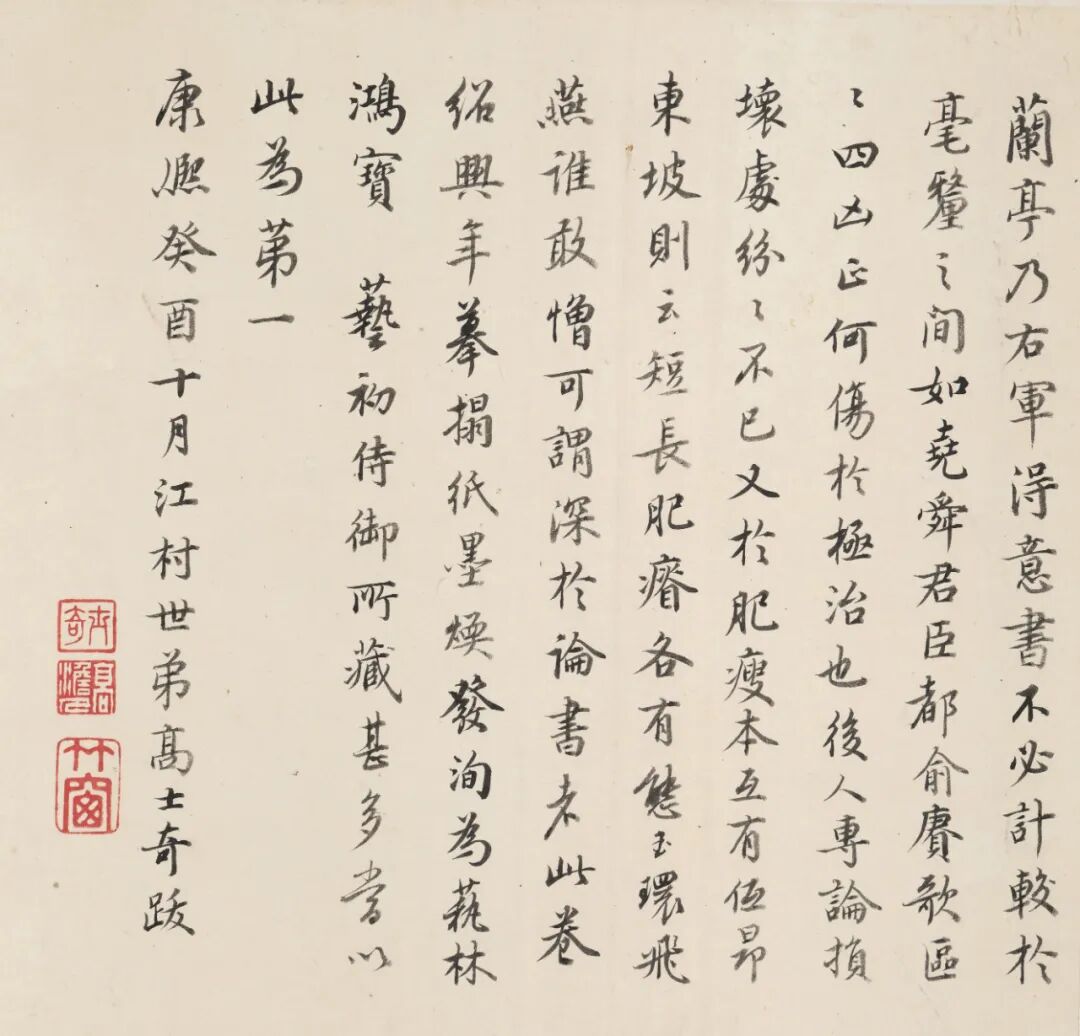 蘭亭乃右軍得意書不必計較於
毫釐之间如堯舜君臣都俞賡歌區
〻四凶正何傷於極治也後人專論損
壞處紛〻不已又於肥瘦本互有低昂
東坡則云短長肥瘠各有態玉環飛
燕誰敢憎可謂深於論書者此卷
紹興年摹搨紙墨煥發洵為蓺林
鴻寶 藝初侍御所藏甚多當以
此為苐一
康熈癸酉十月江村世弟高士奇跋
士奇
高澹人
竹窗